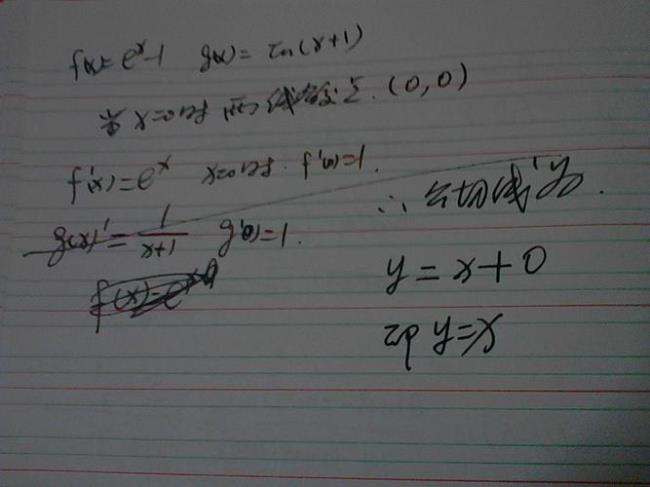 f(x)=e^x-1 g(x)=ln(x+1)
x=0时 (0,0)
f'(x)=e^x x=0时 f'(0)=1.
g(x)'=1/(x+1) g'(0)=1.
∴公切线为
y=x+0
即y=x